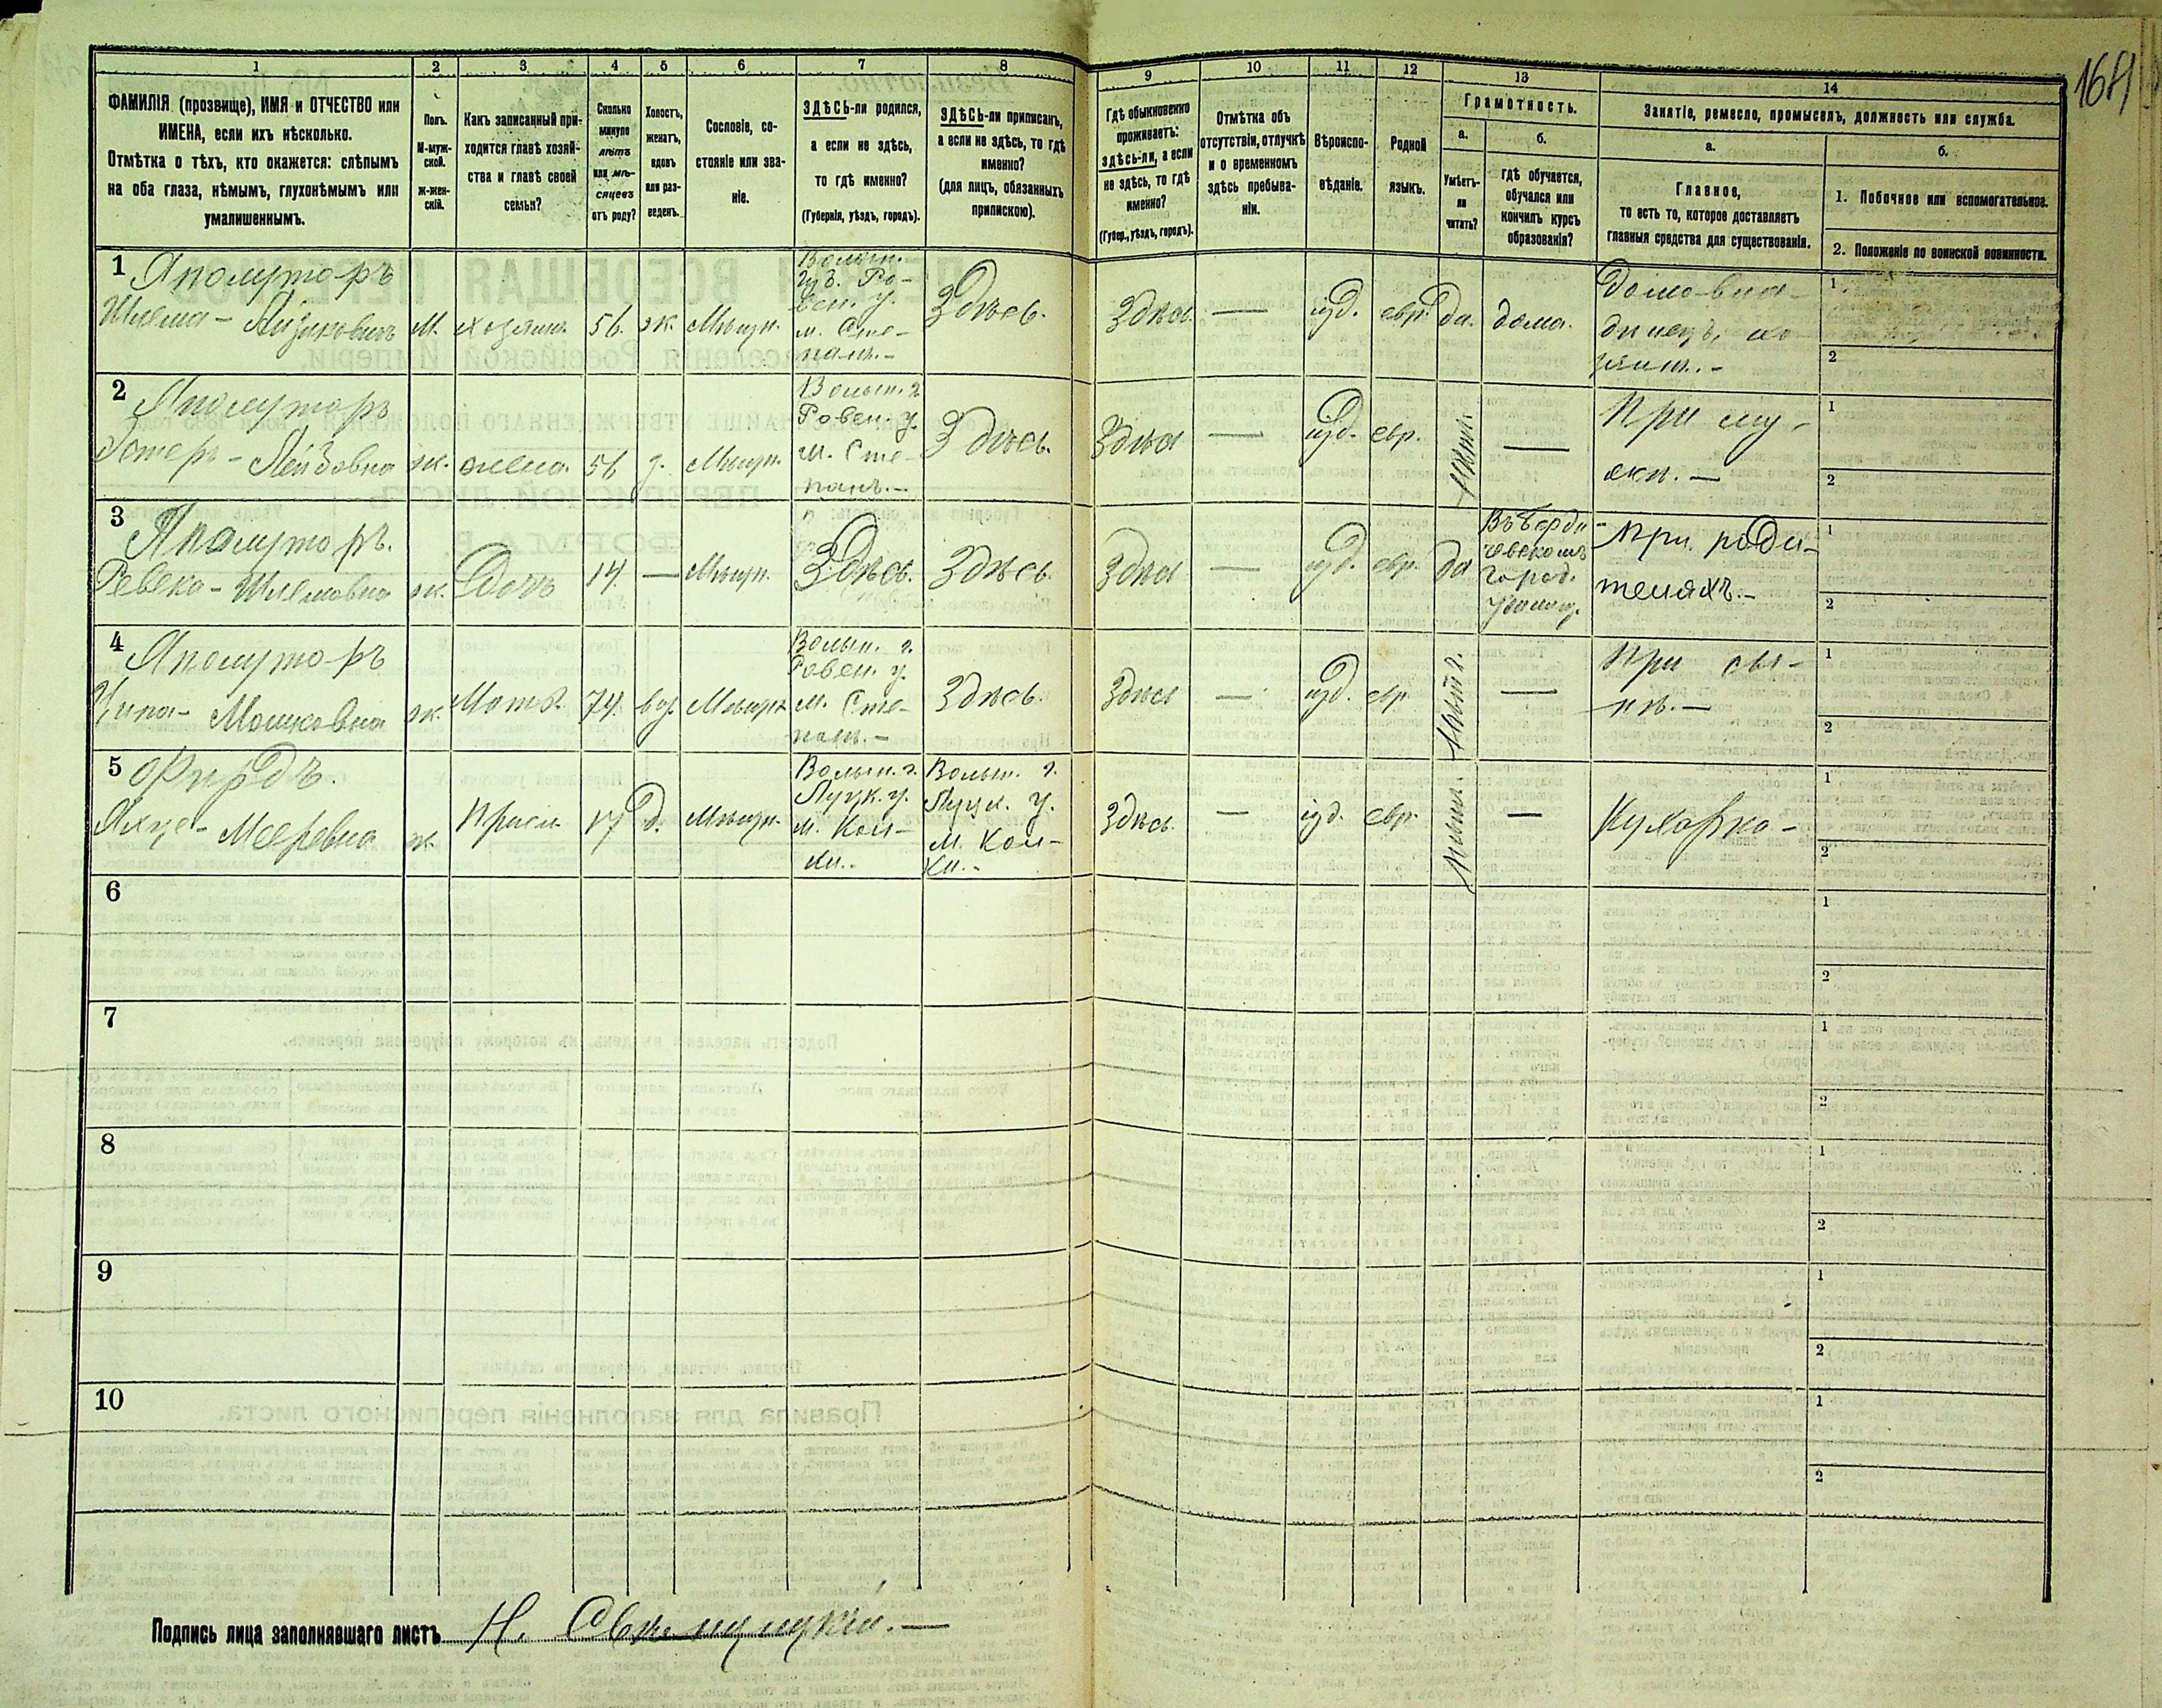 164
1 2 3 4 5 6 7 8 9 10 11 12 13 14
ФАМИЛІЯ (прозвище), ИМЯ и ОТЧЕСТВО или
ИМЕНА, если ихъ нѣсколько.
Отмѣтка о тѣхъ, кто окажется: слѣпымъ
на оба глаза, нѣмымъ, глухонѣмымъ или
умалишеннымъ.
Полъ.
М-муж-
ской.
Ж-жен-
скій.
Какъ записанный при-
ходится главѣ хозяй-
ства и главѣ своей
семьи?
Сколько
минуло
лѣтъ
или мѣ-
сяцевъ
отъ роду?
Холостъ,
женатъ,
вдовъ
или раз-
веденъ.
Сословіе, со-
стояніе или зва-
ніе.
ЗДѢСЬ-ли родился,
а если не здѣсь,
то гдѣ именно?
(Губернія, уѣздъ, городъ).
ЗДѢСЬ-ли приписанъ,
а если не здѣсь, то гдѣ
именно?
(для лицъ, обязанныхъ
припискою).
Гдѣ обыкновенно
проживаетъ:
здѣсь-ли, а если
не здѣсь, то гдѣ
именно?
(Губер., уѣздъ, городъ).
Отмѣтка объ
отсутствіи, отлучкѣ
и о временномъ
здѣсь пребыва-
ніи.
Вѣроиспо-
вѣданіе.
Родной
языкъ.
Грамотность.
а.
Умѣетъ-
ли
читать?
б.
гдѣ обучается,
обучался или
кончилъ курсъ
образованія?
Занятіе, ремесло, промыселъ, должность или служба.
а.
Главное,
то есть то, которое доставляетъ
главныя средства для существованія.
б.
1. Побочное или вспомогательное.
2. Положеніе по воинской повинности.
1 Яполуторъ
Шлема - Айзиковичъ
М.
хозяин.
56.
ж.
Мѣщан.
Волын.
губ. Ро-
вен. у.
м. Сте-
пань. -
Здѣсь.
Здѣсь
—
іуд.
евр.
да.
дома.
Домо-вла-
дѣлецъ, хо-
зяин. -
1
2
2 Яполуторъ
Эстеръ - Лейбовна
ж.
жена.
56
з.
Мѣщан.
Волын. г.
Ровен. у.
м. Сте-
пань. -
Здѣсь.
Здѣсь
—
іуд.
евр.
—
При му-
жѣ. —
1
2
3 Яполуторъ.
Ревека - Шлемовна
ж.
Дочь
14
—
Мѣщан.
Здѣсь.
Здѣсь.
Здѣсь
—
іуд.
евр.
да
Въ Берди-
чевскомъ
город.
училищ.
При роди-
теляхъ. -
1
2
4 Яполуторъ
Ципа - Мошковна
ж.
Мать.
74.
вд.
Мѣщан.
Волын. г.
Ровен. у.
м. Сте-
пань. -
Здѣсь.
Здѣсь
—
іуд.
евр.
—
При сы-
нѣ. —
1
2
5
Мееровна
ж.
Присл.
17
д.
Мѣщан.
Волын. г.
Луцк. у.
м. Кол-
ки. -
Волын. г.
Луцк. у.
м. Кол-
ки. -
Здѣсь
—
іуд.
евр.
—
Кухарка -
1
2
6
1
2
7
1
2
8
1
2
9
1
2
10
1
2
Подпись лица заполнявшаго листъ Н.